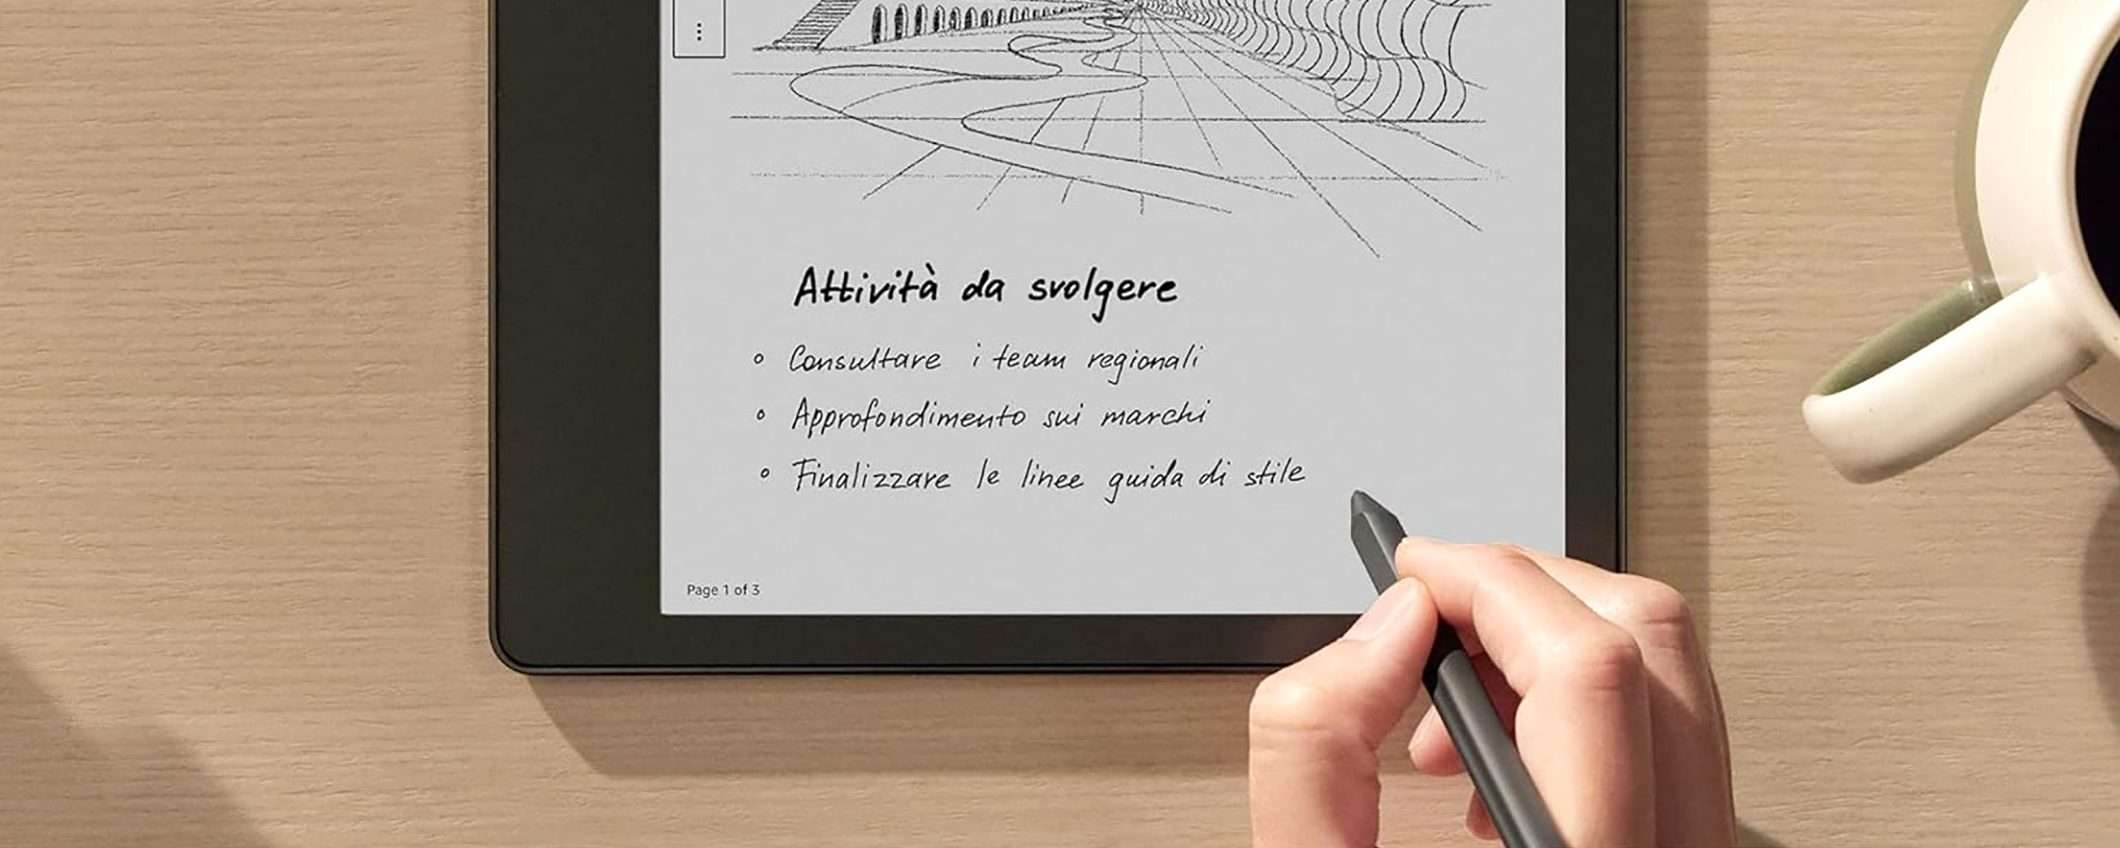 Attività da svolgere
Consultare i team regionali
Approfondimento sui marchi
Finalizzare le linee guida di stile
Page 1 of 3